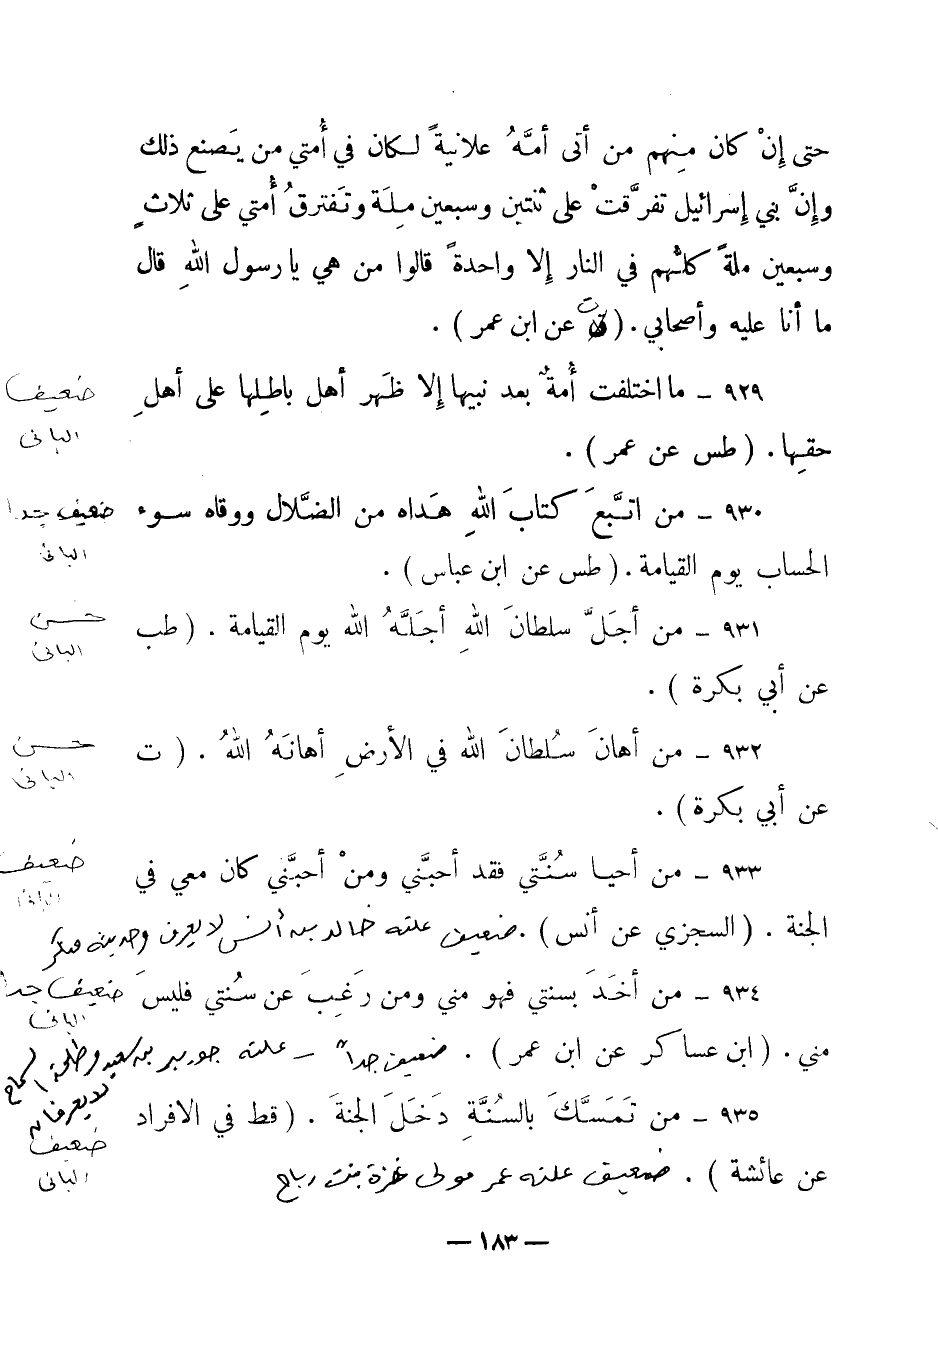 حتى إِنْ كان منهم من أتى أمَّهُ علانيةً لكان في أُمتي من يَصنع ذلك
وإِنَّ بني إسرائيل تفرَّقتْ على ثنتين وسبعين مِلَة وتَفترقُ أُمتي على ثلاثٍ
وسبعين ملةً كلهُم في النار إلا واحدةً قالوا من هي يا رسول اللهِ قال
ما أنا عليه وأصحابي . ( ت عن ابن عمر ) .
٩٢٩ ــ ما اختلفت أُمةٌ بعد نبيها إلا ظَهر أهل باطلِها على أهلِ
ضعيف
الباني
حقها . ( طس عن عمر ) .
٩٣٠ ــ من اتبَّعَ كتابَ اللهِ هَداه من الضَّلال ووقاه سوء
ضعيف جداً
الباني
الحساب يوم القيامة . ( طس عن ابن عباس ) .
٩٣١ ــ من أجَلَّ سلطانَ اللهِ أجَلَّهُ الله يوم القيامة . ( طب
حسن
الباني
عن أبي بكرة ) .
٩٣٢ ــ من أهانَ سُلطانَ الله في الأرضِ أهانَهُ اللهُ . ( ت
حسن
الباني
عن أبي بكرة ) .
٩٣٣ ــ من أحيا سُنَّتي فقد أحبَّني ومنْ أحبَّني كان معي في
ضعيف
الباني
الجنة . ( السجزي عن أنس ) . ضعيف علته خالد بن أنس لا يعرف وحديثه منكر
٩٣٤ ــ من أخَذَ بسنتي فهو مني ومن رَغِبَ عن سُنتي فليسَ
ضعيف جداً
الباني
مني . ( ابن عساكر عن ابن عمر ) . ضعيف جداً – علته جويبر بن سعيد وطلحة السماح
لا يعرفان
٩٣٥ ــ من تَمَسَّكَ بالسُنَّةِ دَخَلَ الجنةَ . ( قط في الافراد
ضعيف
الباني
عن عائشة ) . ضعيف علته عمر مولى غزة بنت رباح
— ١٨٣ —